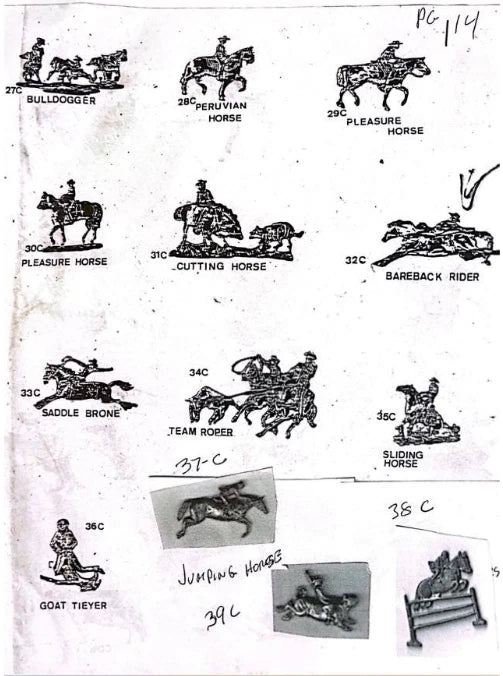 PG 114
27C
BULLDOGGER
28C
PERUVIAN
HORSE
29C
PLEASURE
HORSE
30C
PLEASURE HORSE
31C
CUTTING HORSE
32C
BAREBACK RIDER
33C
SADDLE BRONE
34C
TEAM ROPER
35C
SLIDING
HORSE
36C
GOAT TIEYER
37-C
38C
JUMPING HORSE
39C